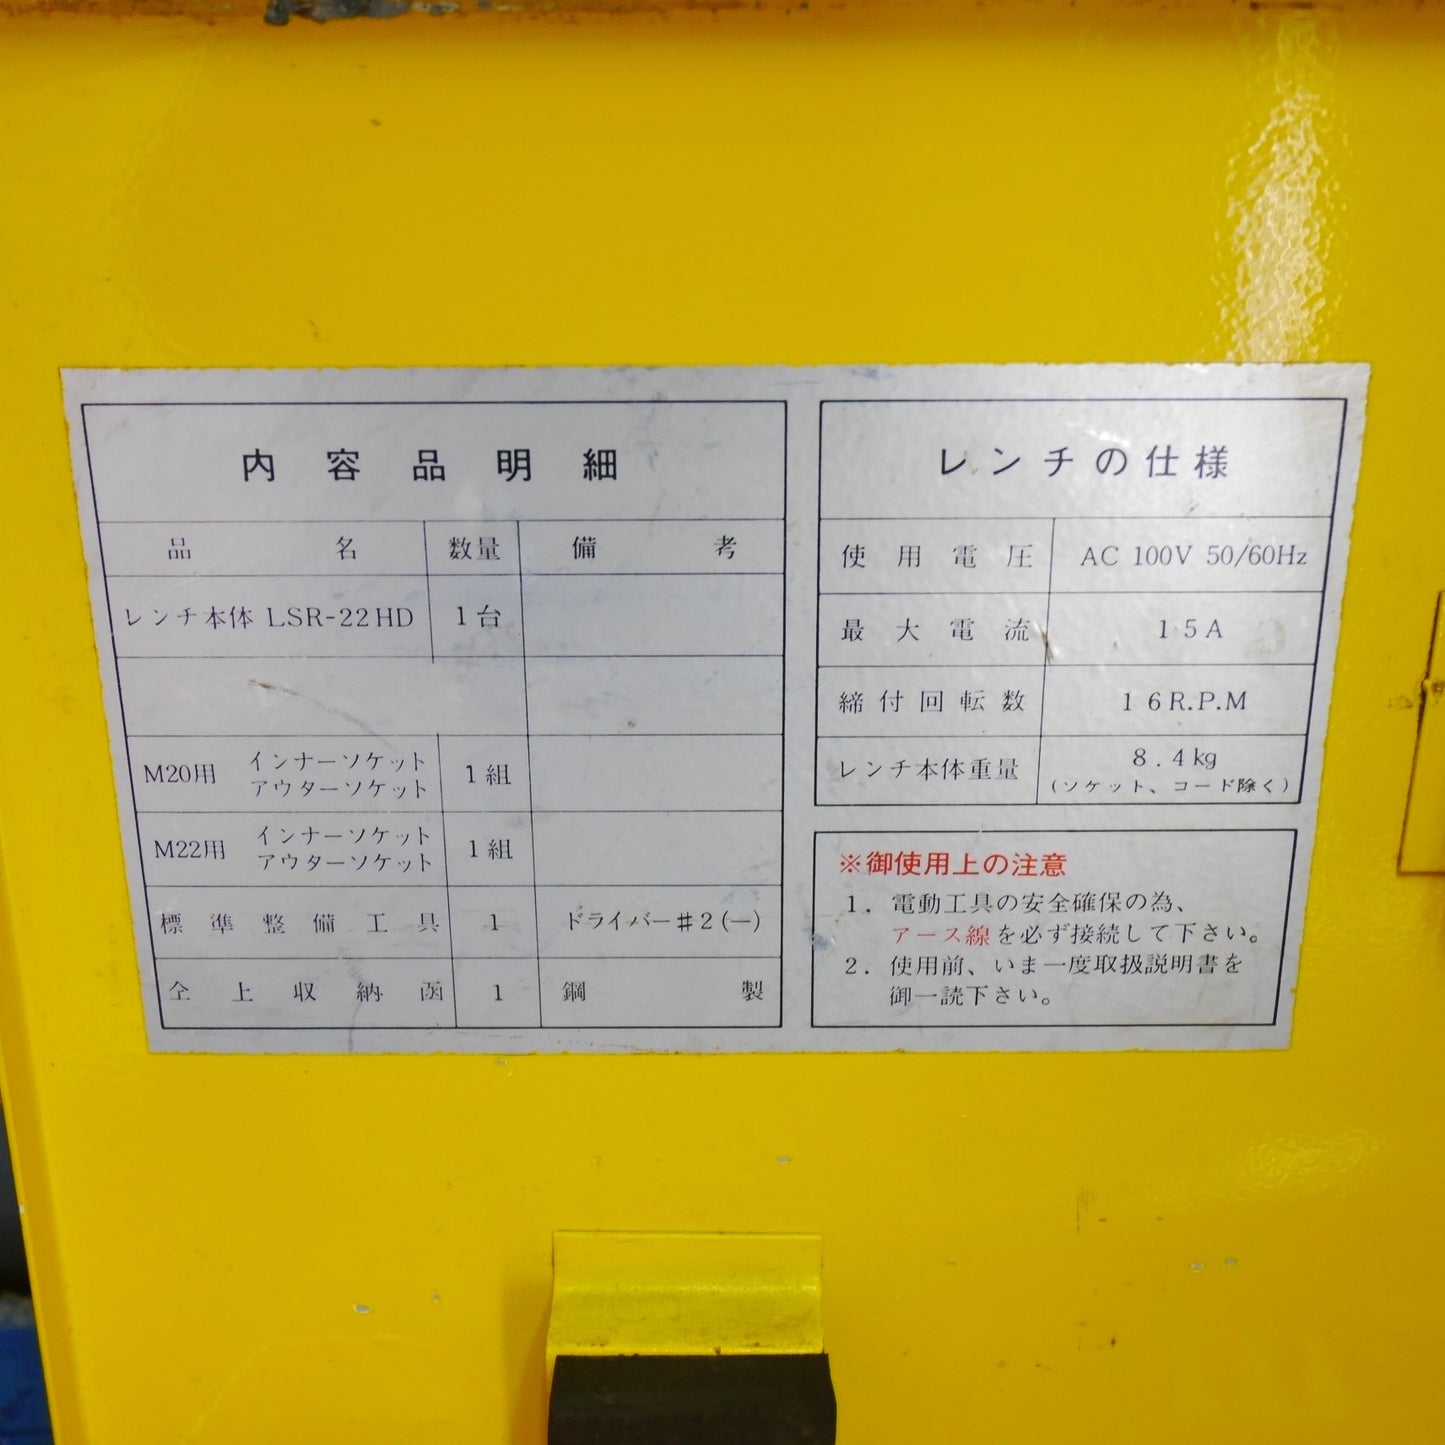 内容品明細
品名 数量 備考
レンチ本体 LSR-22HD 1台
M20用 インナーソケット 1組
アウターソケット
M22用 インナーソケット 1組
アウターソケット
標準整備工具 1 ドライバー#2(−)
仝上収納函 1 鋼製
レンチの仕様
使用電圧 AC 100V 50/60Hz
最大電流 15A
締付回転数 16R.P.M
レンチ本体重量 8.4kg
(ソケット、コード除く)
※御使用上の注意
1. 電動工具の安全確保の為、
アース線を必ず接続して下さい。
2. 使用前、いま一度取扱説明書を
御一読下さい。